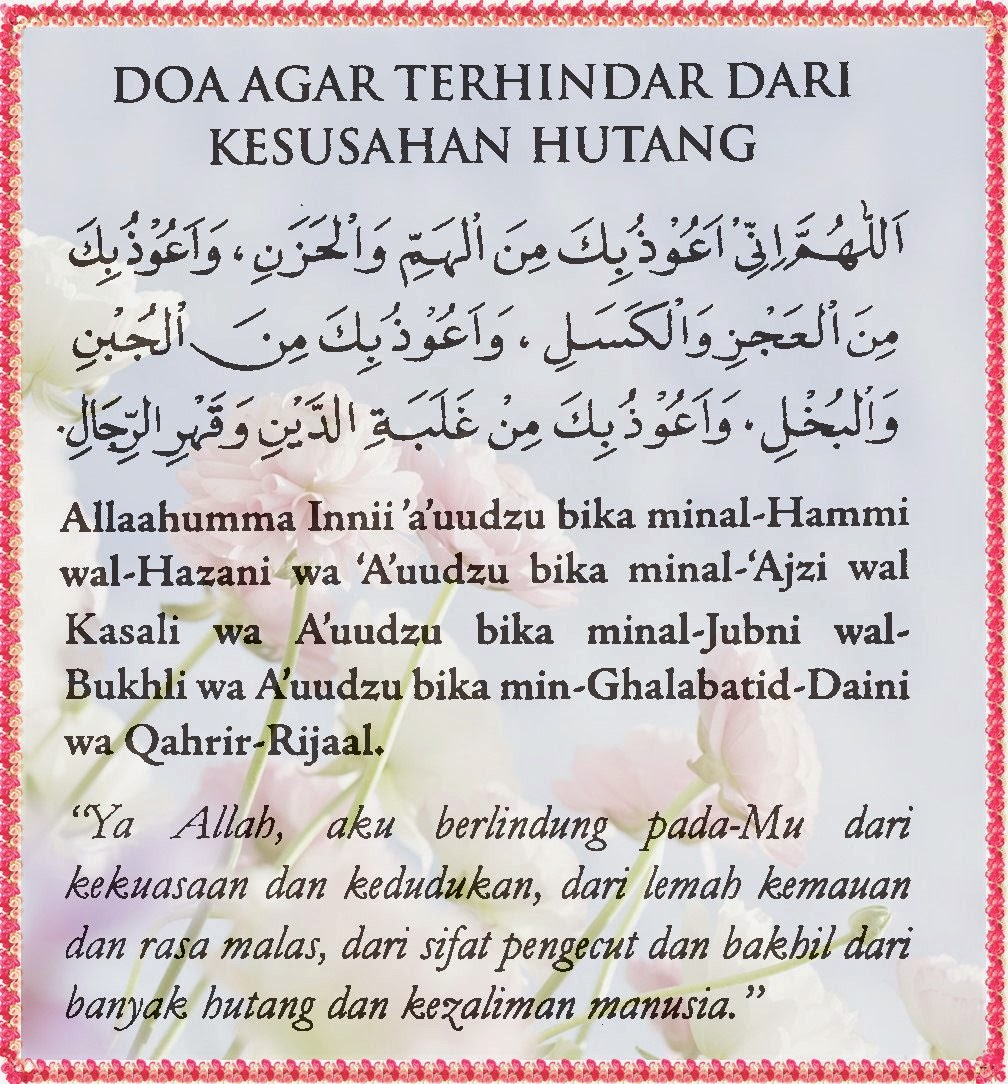 DOA AGAR TERHINDAR DARI
KESUSAHAN HUTANG
اَللّٰهُمَّ اِنِّيْ اَعُوْذُ بِكَ مِنَ الْهَمِّ وَالْحَزَنِ، وَاَعُوْذُ بِكَ
مِنَ الْعَجْزِ وَالْكَسَلِ، وَاَعُوْذُ بِكَ مِنَ الْجُبْنِ
وَالْبُخْلِ، وَاَعُوْذُ بِكَ مِنْ غَلَبَةِ الدَّيْنِ وَقَهْرِ الرِّجَالِ.
Allaahumma Innii 'a'uudzu bika minal-Hammi
wal-Hazani wa 'A'uudzu bika minal-'Ajzi wal
Kasali wa A'uudzu bika minal-Jubni wal-
Bukhli wa A'uudzu bika min-Ghalabatid-Daini
wa Qahrir-Rijaal.
“Ya Allah, aku berlindung pada-Mu dari
kekuasaan dan kedudukan, dari lemah kemauan
dan rasa malas, dari sifat pengecut dan bakhil dari
banyak hutang dan kezaliman manusia.”